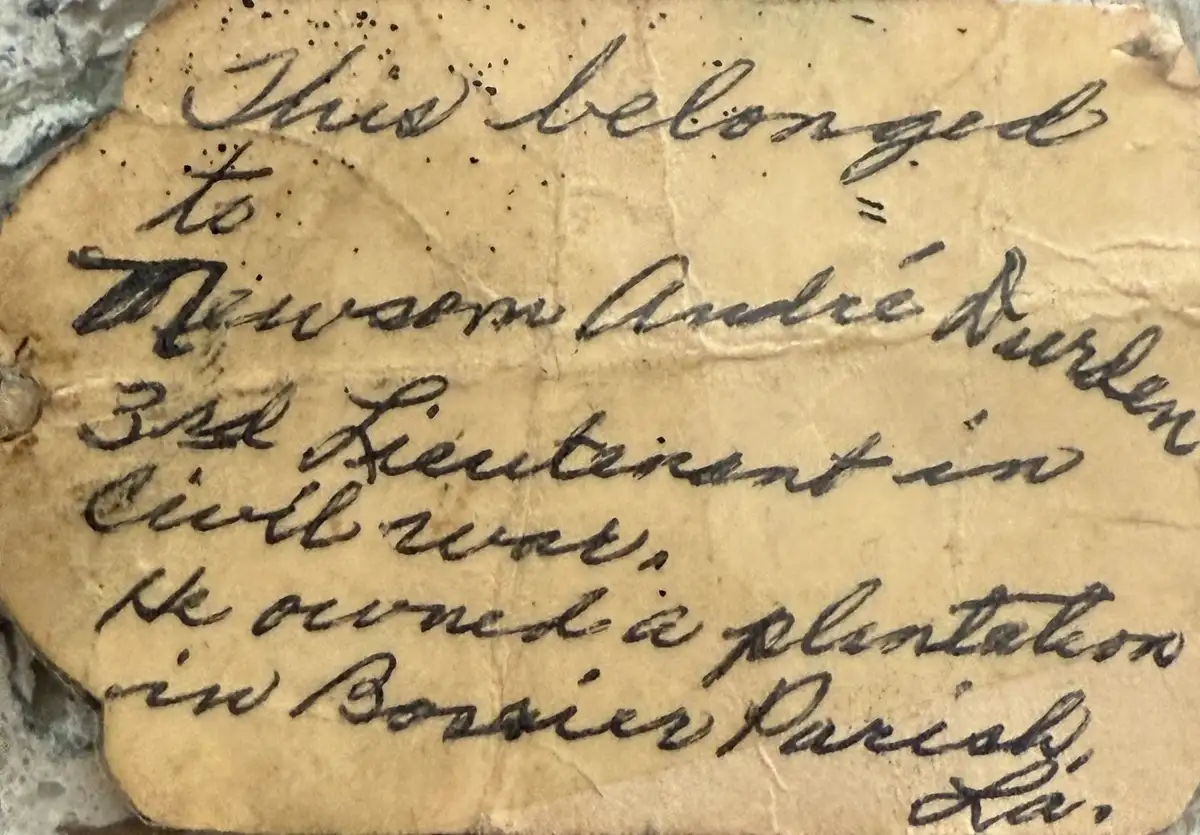 This belonged
to
Newsom André Durden
3rd Lieutenant in
Civil war.
He owned a plantation
in Bossier Parish,
La.